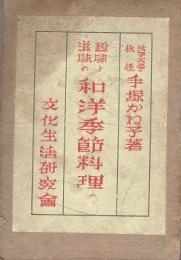 女子大学
教授
手塚かね子著
趣味と
滋味の
和洋季節料理
文化生活研究會